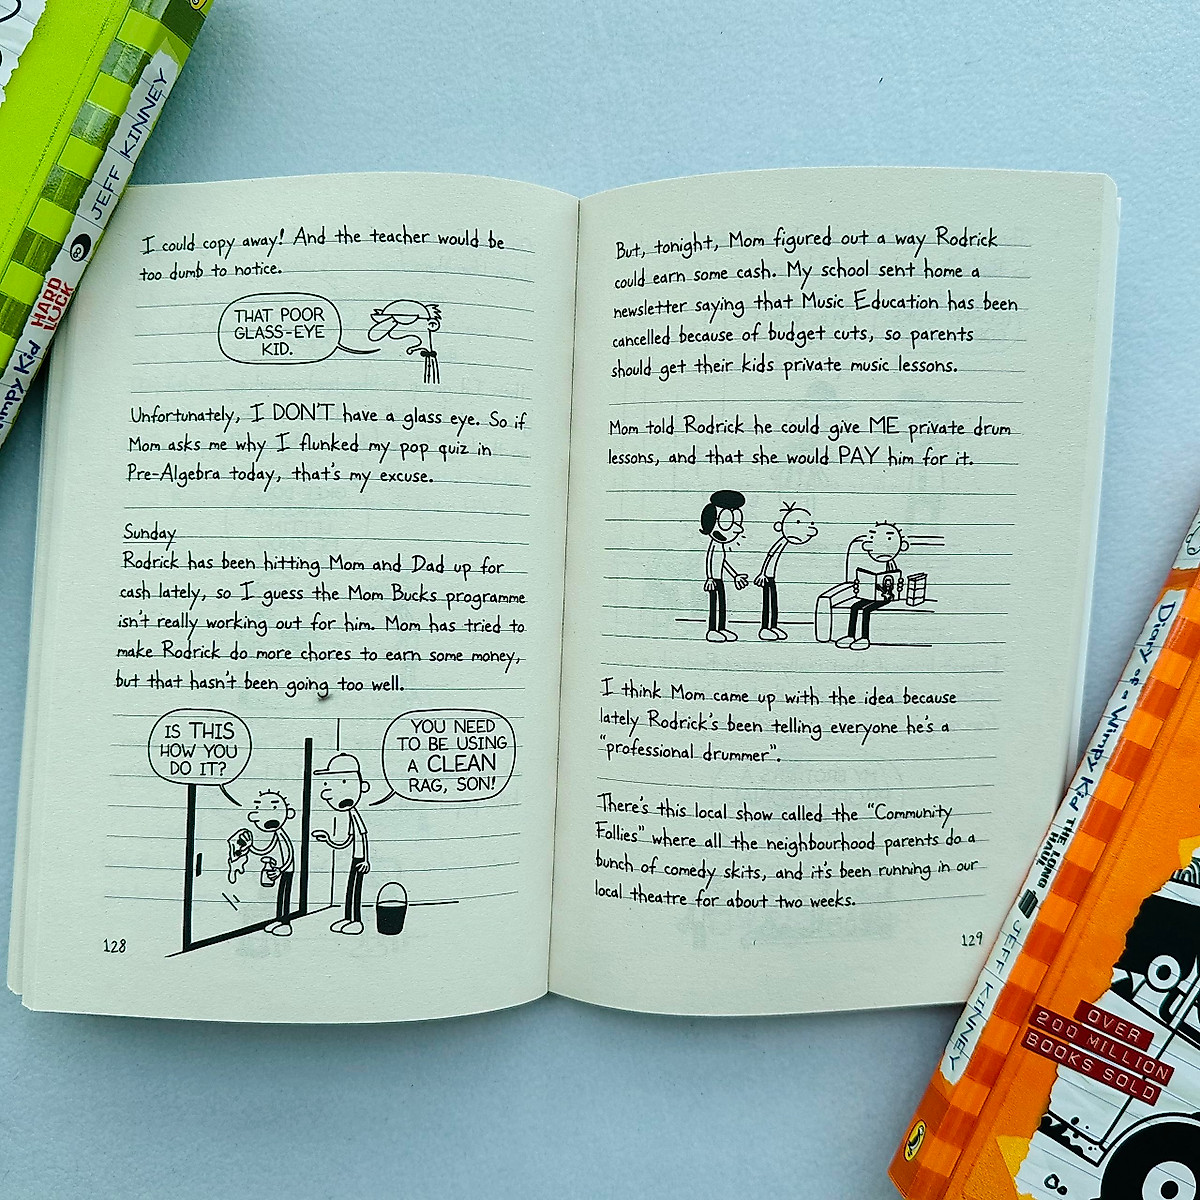 JEFF KINNEY
8
HARD
LUCK
Wimpy Kid
I could copy away! And the teacher would be
too dumb to notice.
THAT POOR
GLASS-EYE
KID.
Unfortunately, I DON'T have a glass eye. So if
Mom asks me why I flunked my pop quiz in
Pre-Algebra today, that's my excuse.
Sunday
Rodrick has been hitting Mom and Dad up for
cash lately, so I guess the Mom Bucks programme
isn't really working out for him. Mom has tried to
make Rodrick do more chores to earn some money,
but that hasn't been going too well.
IS THIS
HOW YOU
DO IT?
YOU NEED
TO BE USING
A CLEAN
RAG, SON!
128
But, tonight, Mom figured out a way Rodrick
could earn some cash. My school sent home a
newsletter saying that Music Education has been
cancelled because of budget cuts, so parents
should get their kids private music lessons.
Mom told Rodrick he could give ME private drum
lessons, and that she would PAY him for it.
I think Mom came up with the idea because
lately Rodrick's been telling everyone he's a
"professional drummer".
There's this local show called the "Community
Follies" where all the neighbourhood parents do a
bunch of comedy skits, and it's been running in our
local theatre for about two weeks.
129
Diary of a Wimpy Kid
THE LONG
HAUL
JEFF KINNEY
OVER
200 MILLION
BOOKS SOLD